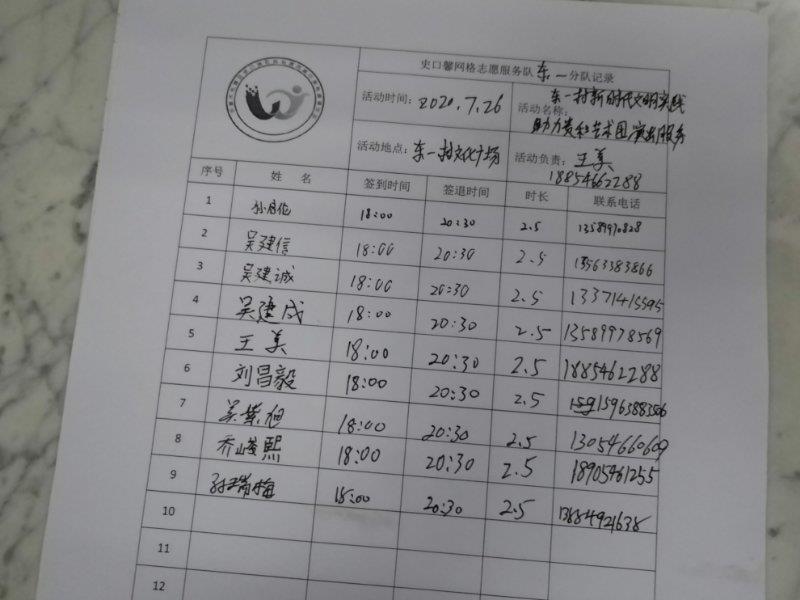 史口馨网格志愿服务队东一分队记录
活动时间：2020.7.26
活动名称：东一村新时代文明实践
助力贵和艺术团演出服务
活动地点：东一村文化广场
活动负责：王美
18854662288
序号 姓名 签到时间 签退时间 时长 联系电话
1 18:00 20:30 2.5 13589970828
2 吴建信 18:00 20:30 2.5 13563383866
3 吴建诚 18:00 20:30 2.5 13371415595
4 吴建成 18:00 20:30 2.5 13589978569
5 王美 18:00 20:30 2.5 18854662288
6 刘昌毅 18:00 20:30 2.5
7 18:00 20:30 2.5 13054660609
8 乔峻熙 18:00 20:30 2.5 18905461255
9 孙瑞梅 18:00 20:30 2.5 13884921638
10
11
12